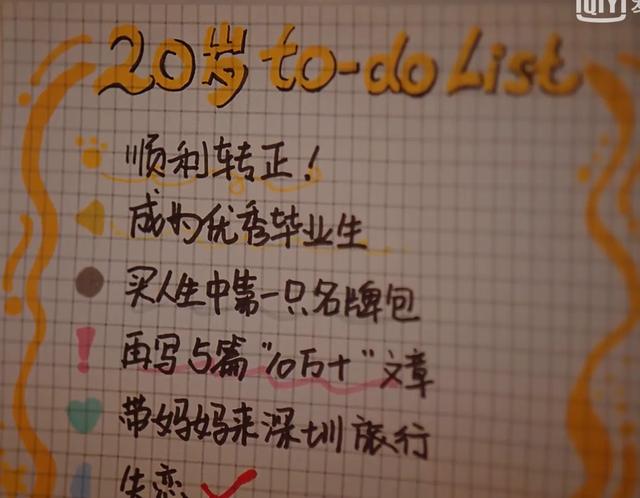 iQIYI
20岁 to-do List
顺利转正！
成为优秀毕业生
买人生中第一只名牌包
再写5篇“10万+”文章
带妈妈来深圳旅行
失恋